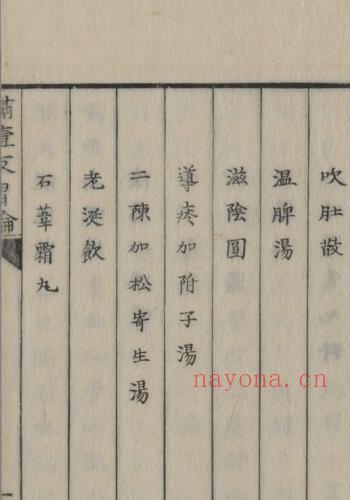 吹肚散
温脾湯
滋陰圓
導痰加附子湯
二陳加松寄生湯
老涎飲
石葦霜丸
胃論
nayona.cn